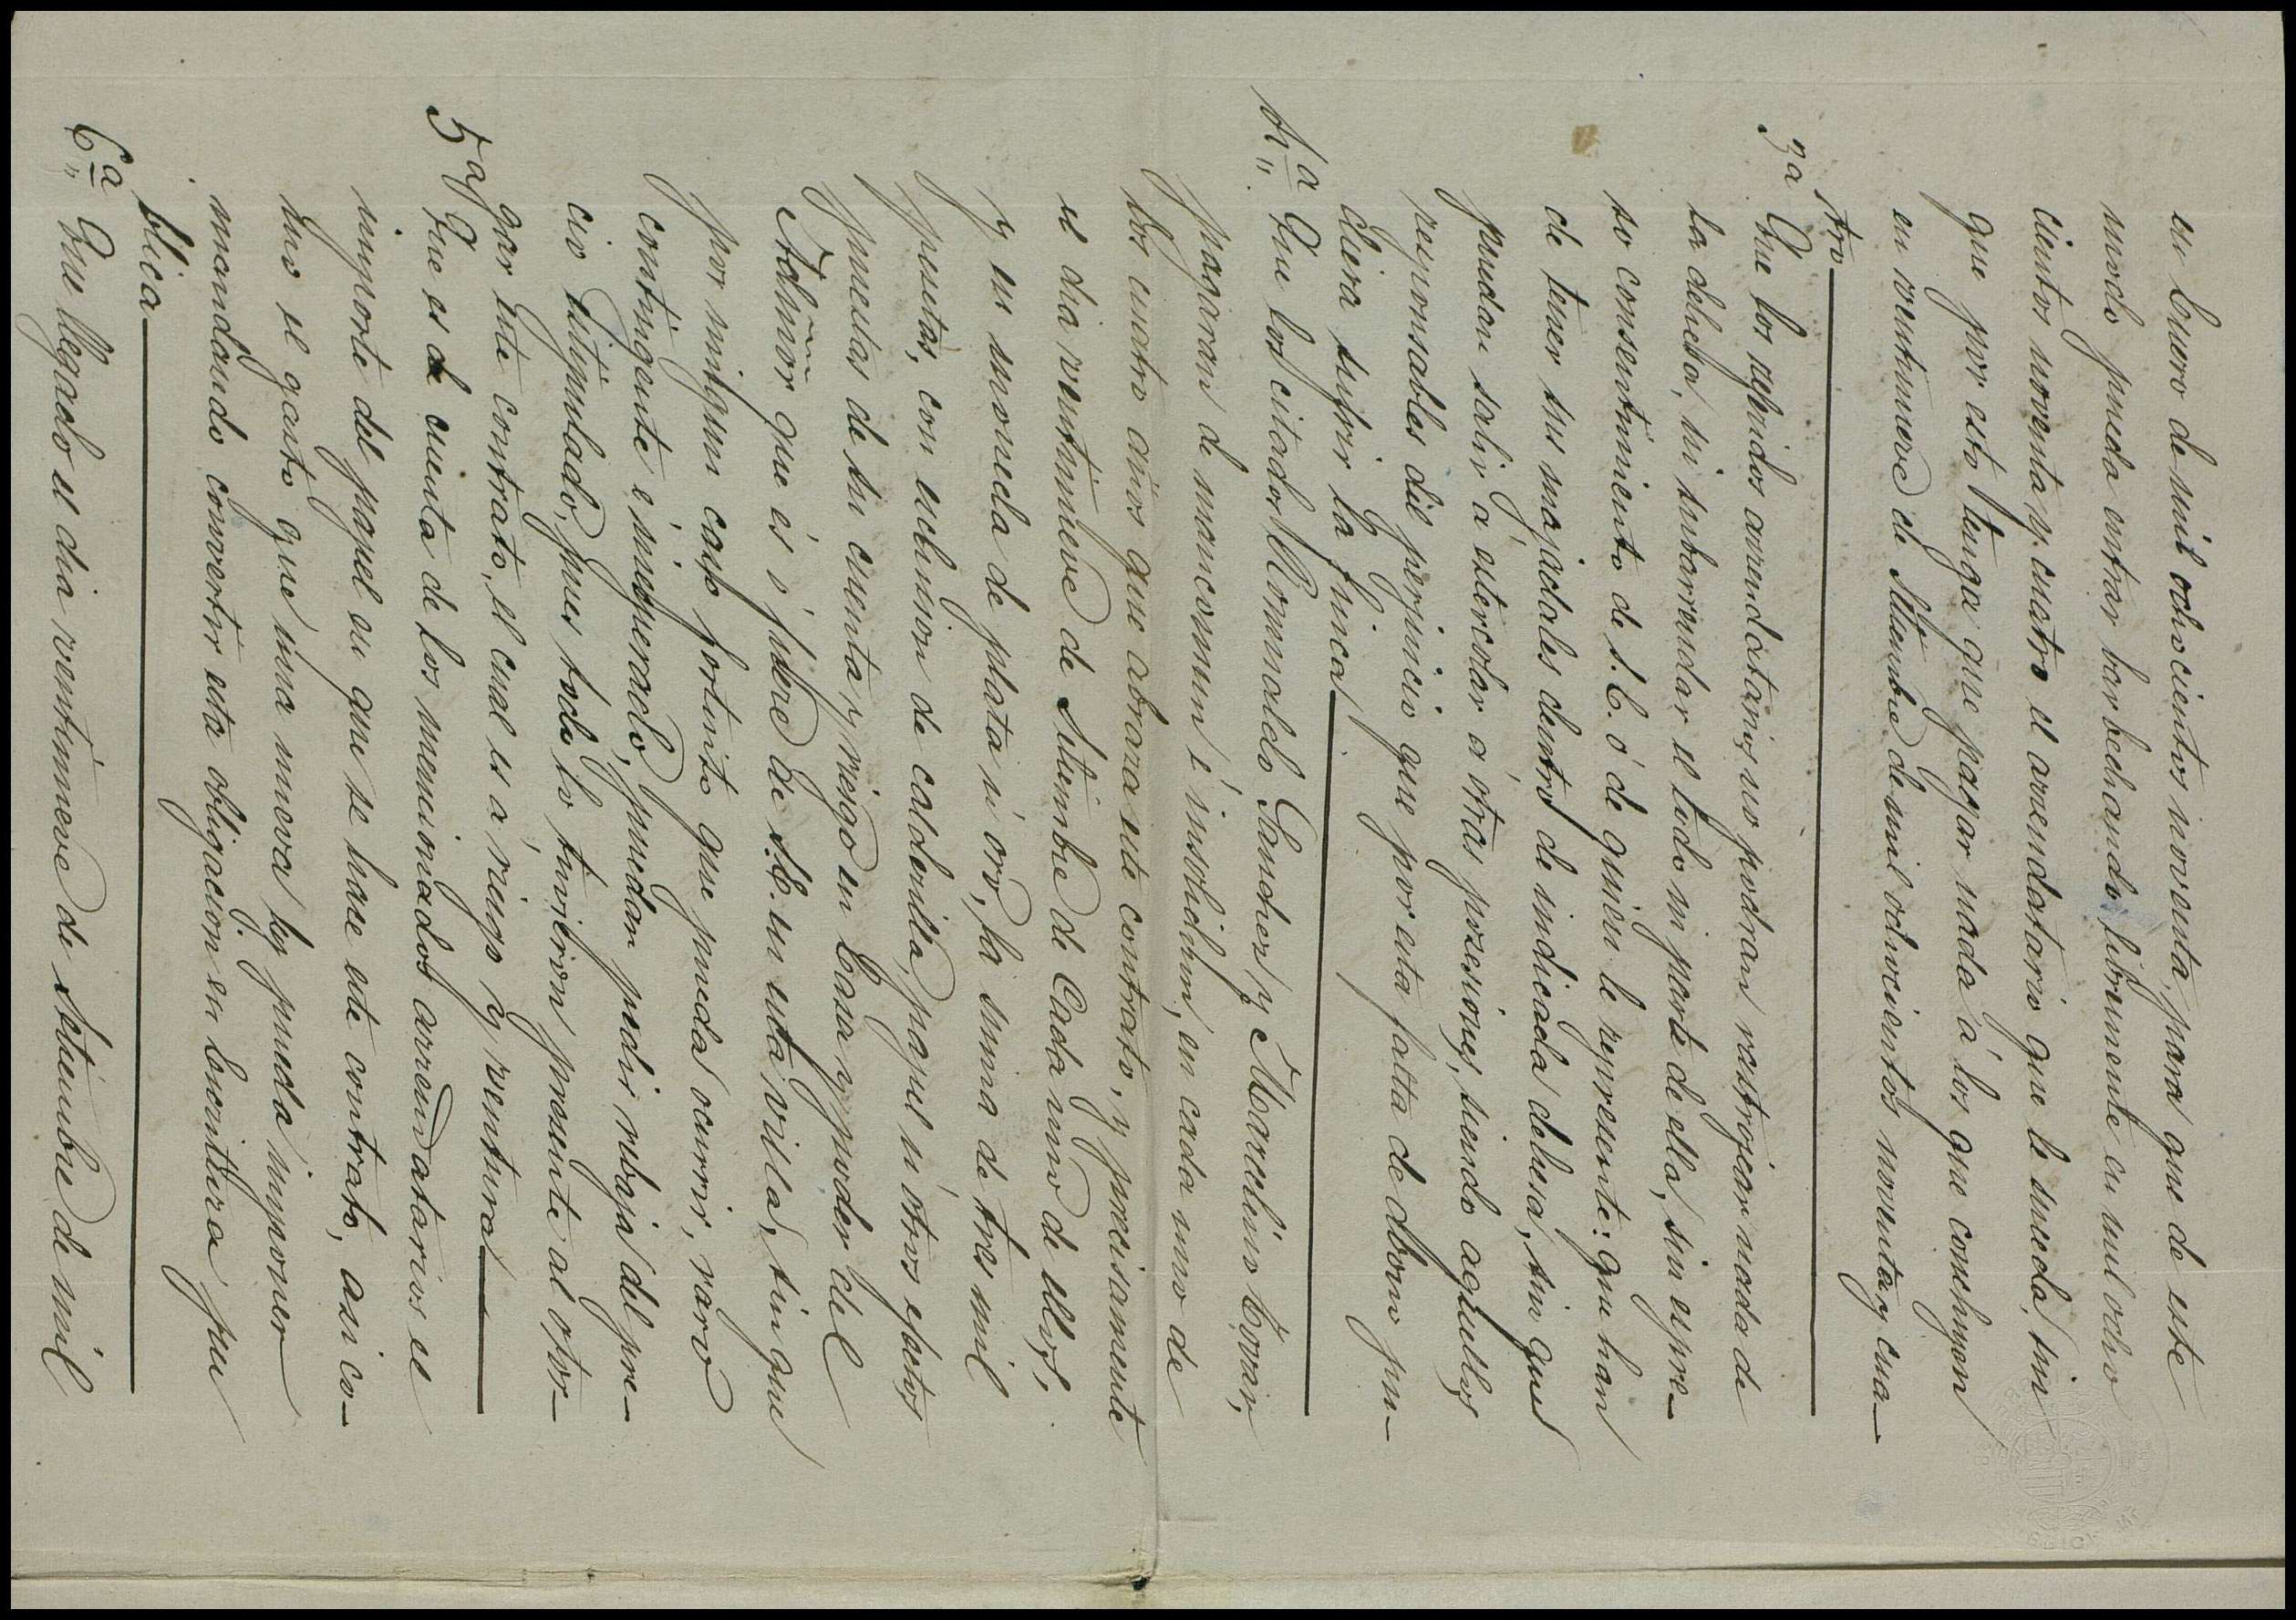 en Enero de mil ochocientos noventa, para que de este
modo pueda entrar barbechando libremente en mil ocho
cientos noventa y cuatro el arrendatario que le suceda, sin
que por esto tenga que pagar nada á los que concluyen
en veintinueve de Setiembre de mil ochocientos noventa y cua-
tro
3a Que los referidos arrendatarios no podran rastrojear nada de
la dehesa, ni subarrendar el todo ni parte de ella, sin espre-
so consentimiento de S.E. ó de quien le represente: que han
de tener sus majadales dentro de indicada dehesa, sin que
puedan salir á estercolar á otras posesiones, siendo aquellos
responsables del perjuicio que por esta falta de abono pu-
diera sufrir la finca
4a Que los citados Romualdo Sanchez y Marcelino Tovar,
pagaran de mancomun é insolidum, en cada uno de
los cuatro años que abraza este contrato, y precisamente
el dia veintinueve de Setiembre de Cada uno de ellos,
y en moneda de plata ú oro, la suma de tres mil
pesetas, con esclusion de calderilla, papel ú otros efectos
puestas de su cuenta y riesgo en Casa y poder del
Admor que es ó fuere de S.E. en esta villa, sin que
por ningun caso fortuito que pueda ocurrir, raro
contingente é inesperado, puedan pedir rebaja del pre-
cio estipulado, pues todo lo tuvieron presente al otor-
gar este contrato, el cual es á riesgo y ventura
5a Que es de cuenta de los mencionados arrendatarios el
importe del papel en que se hace este contrato, asi co-
mo el gasto que una nueva ley pueda imponer
mandando convertir esta obligacion en Escritura pu
blica
6a Que llegado el dia veintinueve de Setiembre de mil